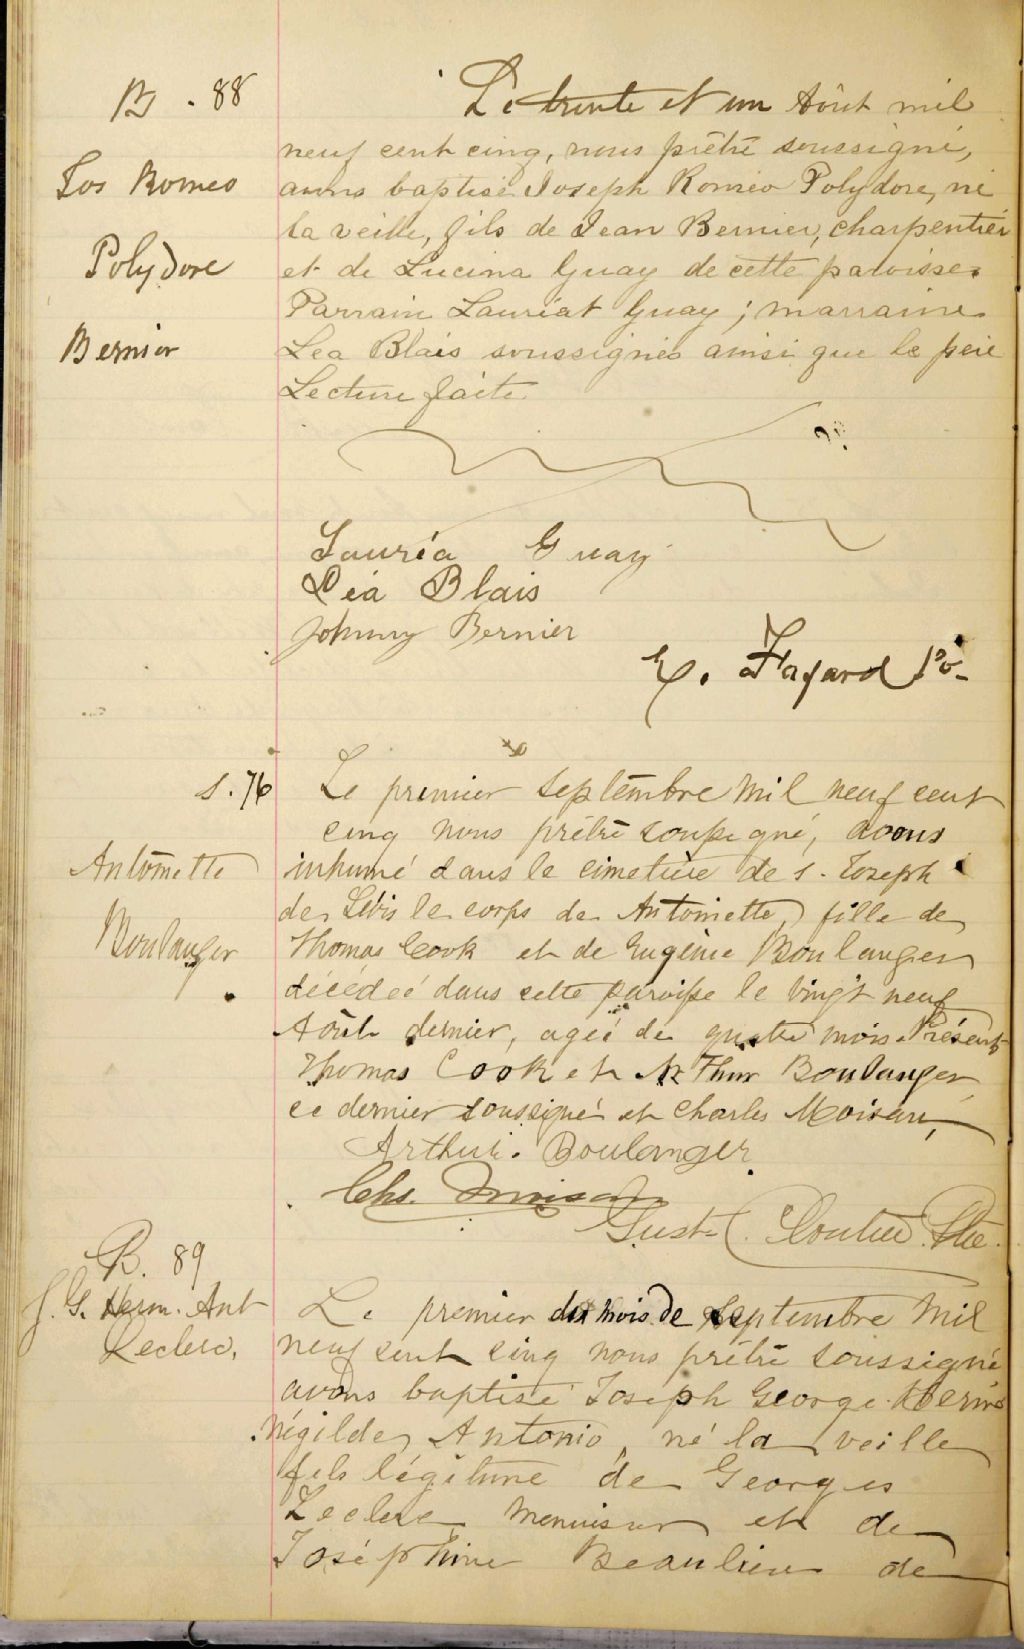 B. 88
Le trente et un Août mil
neuf cent cinq, nous prêtre soussigné,
Jos Romeo
avons baptisé Joseph Roméo Polydore, né
la veille, fils de Jean Bernier, charpentier
Polydore
et de Lucina Guay de cette paroisse.
Parrain Lauriat Guay; marraine
Bernier
Lea Blais soussignés ainsi que le père
Lecture faite
Lauría Guay
Léa Blais
Johnny Bernier
E. Fafard
S. 76
Le premier Septembre mil neuf cent
cinq nous prêtre soussigné, avons
Antoinette
inhumé dans le cimetière de S. Joseph
de Lévis le corps de Antoinette, fille de
Boulanger
Thomas Cook et de Eugénie Boulanger
décédée dans cette paroisse le vingt neuf
Août dernier, agée de quatre mois. Présents
Thomas Cook et Arthur Boulanger
ce dernier soussigné et Charles Moisan,
Arthur. Boulanger
Chs. Moisan
Gust. Cloutier Ptre.
B. 89
J. G. Herm. Ant
Leclerc.
Le premier du mois de Septembre mil
neuf cent cinq nous prêtre soussigné
avons baptisé Joseph George Hermé
négilde, Antonio, né la veille
fils légitime de Georges
Leclerc menuisier et de
Joséphine Beaulieu de